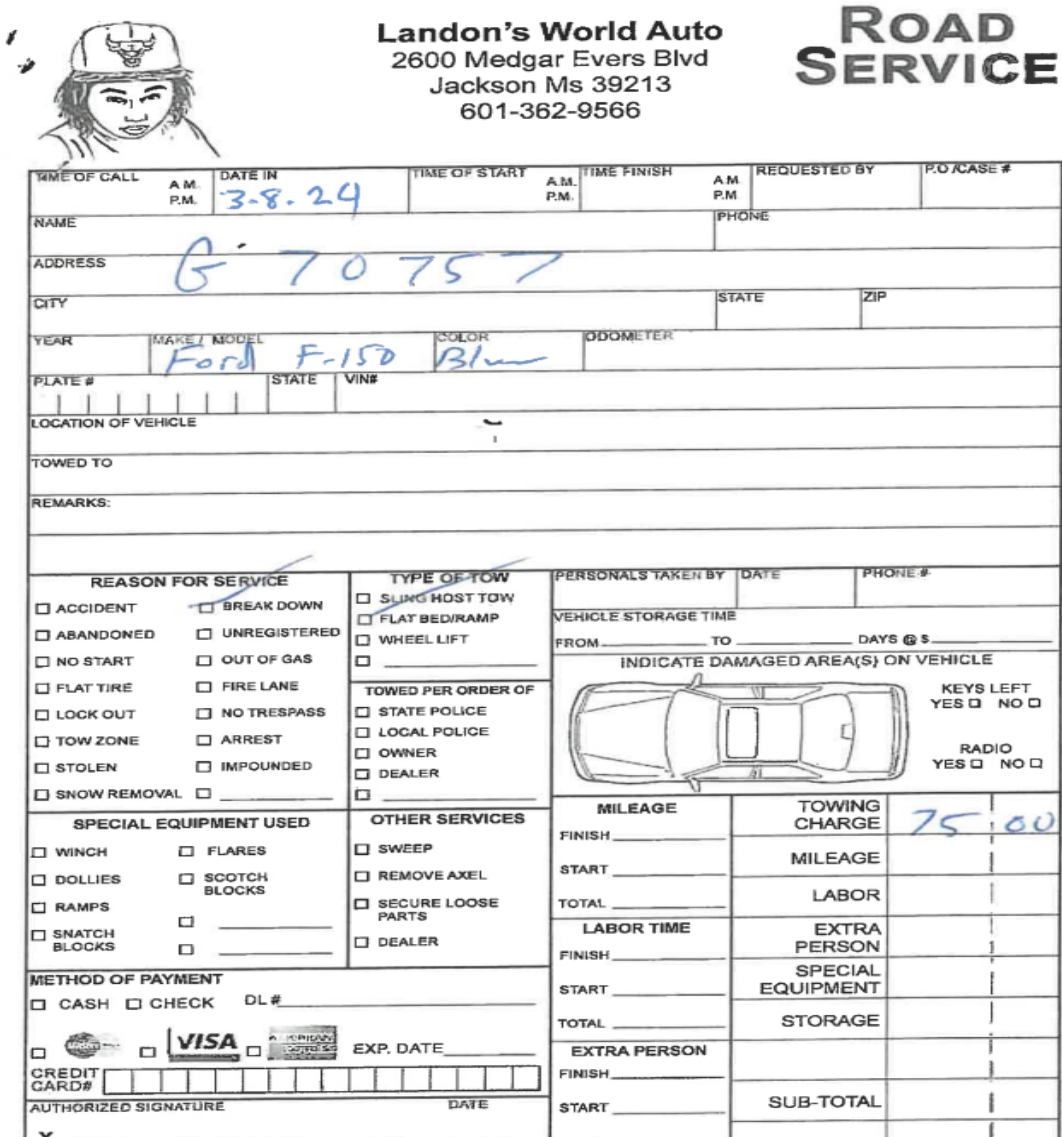 Landon's World Auto
2600 Medgar Evers Blvd
Jackson Ms 39213
601-362-9566
ROAD
SERVICE
TIME OF CALL A.M. P.M. DATE IN 3-8-24 TIME OF START A.M. P.M. TIME FINISH A.M. P.M. REQUESTED BY P.O./CASE #
NAME PHONE
ADDRESS G 70757
CITY STATE ZIP
YEAR MAKE / MODEL Ford F-150 COLOR Blue ODOMETER
PLATE # STATE VIN#
LOCATION OF VEHICLE
TOWED TO
REMARKS:
REASON FOR SERVICE
ACCIDENT BREAK DOWN
ABANDONED UNREGISTERED
NO START OUT OF GAS
FLAT TIRE FIRE LANE
LOCK OUT NO TRESPASS
TOW ZONE ARREST
STOLEN IMPOUNDED
SNOW REMOVAL
TYPE OF TOW
SLING HOST TOW
FLAT BED/RAMP
WHEEL LIFT
TOWED PER ORDER OF
STATE POLICE
LOCAL POLICE
OWNER
DEALER
PERSONALS TAKEN BY DATE PHONE #
VEHICLE STORAGE TIME
FROM TO DAYS @ $
INDICATE DAMAGED AREA(S) ON VEHICLE
KEYS LEFT
YES NO
RADIO
YES NO
SPECIAL EQUIPMENT USED
WINCH FLARES
DOLLIES SCOTCH BLOCKS
RAMPS
SNATCH BLOCKS
OTHER SERVICES
SWEEP
REMOVE AXEL
SECURE LOOSE PARTS
DEALER
MILEAGE
FINISH
START
TOTAL
LABOR TIME
FINISH
START
TOTAL
EXTRA PERSON
FINISH
START
TOWING CHARGE 75 00
MILEAGE
LABOR
EXTRA PERSON
SPECIAL EQUIPMENT
STORAGE
SUB-TOTAL
METHOD OF PAYMENT
CASH CHECK DL #
VISA EXP. DATE
CREDIT CARD#
AUTHORIZED SIGNATURE DATE
X